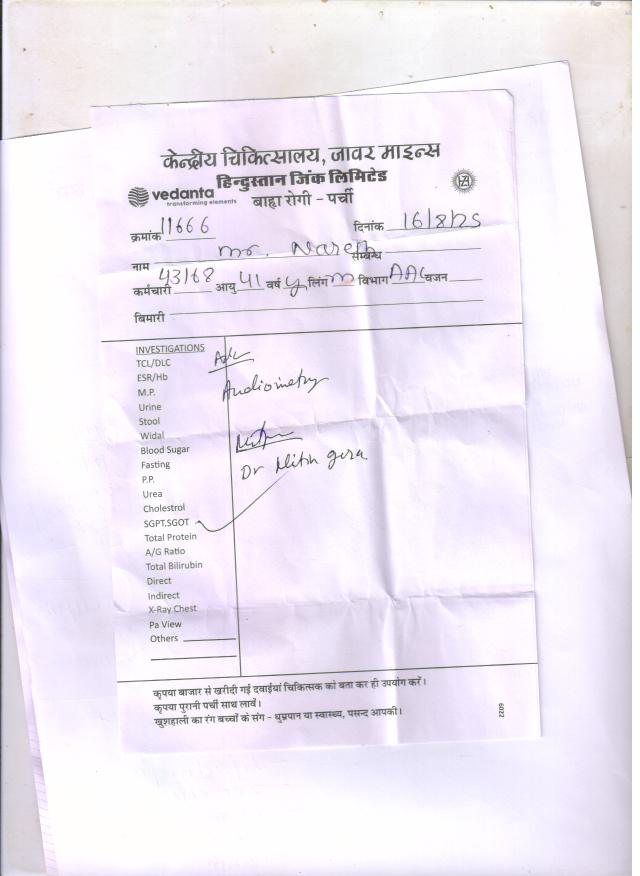 केन्द्रीय चिकित्सालय, जावर माइन्स
हिन्दुस्तान जिंक लिमिटेड
vedanta
transforming elements
बाह्य रोगी - पर्ची
क्रमांक 11666 दिनांक 16/8/25
नाम Mr. Naresh सम्बन्ध
कर्मचारी 43168 आयु 41 वर्ष y लिंग M विभाग AAC वजन
बिमारी
INVESTIGATIONS
TCL/DLC
ESR/Hb
M.P.
Audiometry
Urine
Stool
Widal
Blood Sugar
Dr Nitin Gera
Fasting
P.P.
Urea
Cholestrol
SGPT.SGOT
Total Protein
A/G Ratio
Total Bilirubin
Direct
Indirect
X-Ray Chest
Pa View
Others
कृपया बाजार से खरीदी गई दवाईयां चिकित्सक को बता कर ही उपयोग करें।
कृपया पुरानी पर्ची साथ लावें।
खुशहाली का रंग बच्चों के संग - धुम्रपान या स्वास्थ्य, पसन्द आपकी।
6022